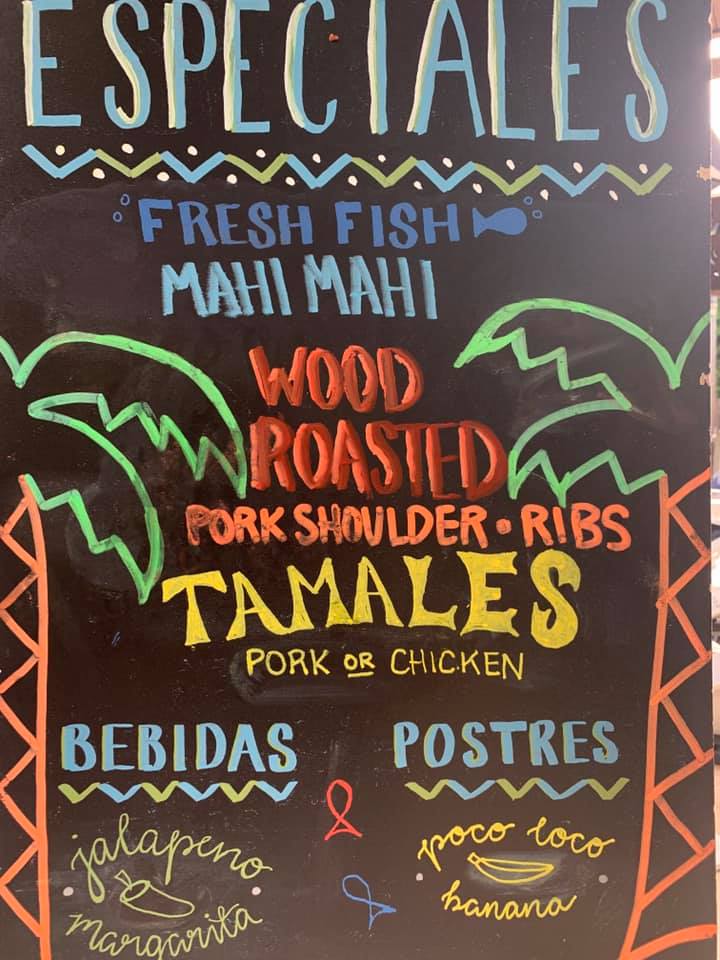 ESPECIALES
FRESH FISH
MAHI MAHI
WOOD
ROASTED
PORK SHOULDER • RIBS
TAMALES
PORK OR CHICKEN
BEBIDAS
jalapeno
margarita
POSTRES
poco loco
banana